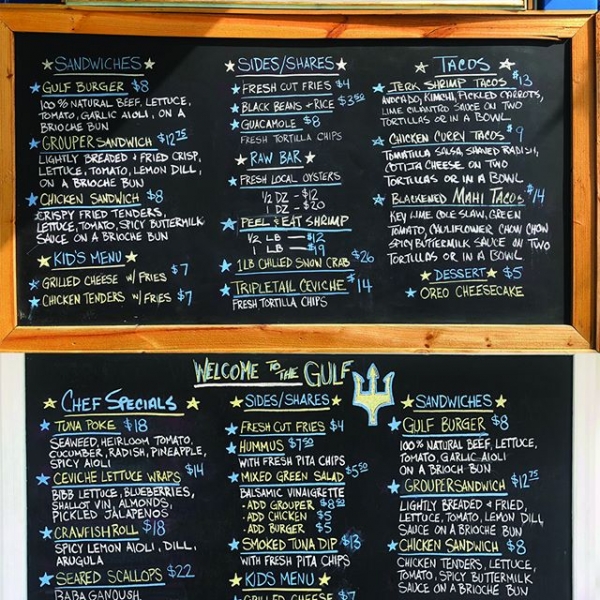 SANDWICHES
GULF BURGER $8
100% NATURAL BEEF, LETTUCE,
TOMATO, GARLIC AIOLI, ON A
BRIOCHE BUN
GROUPER SANDWICH $12.75
LIGHTLY BREADED & FRIED CRISP,
LETTUCE, TOMATO, LEMON DILL,
ON A BRIOCHE BUN
CHICKEN SANDWICH $8
CRISPY FRIED TENDERS,
LETTUCE, TOMATO, SPICY BUTTERMILK
SAUCE ON A BRIOCHE BUN
KID'S MENU
GRILLED CHEESE W/ FRIES $7
CHICKEN TENDERS W/ FRIES $7
SIDES/SHARES
FRESH CUT FRIES $4
BLACK BEANS & RICE $3.50
GUACAMOLE $8
FRESH TORTILLA CHIPS
RAW BAR
FRESH LOCAL OYSTERS
1/2 DZ - $12
1 DZ - $20
PEEL & EAT SHRIMP
1/2 LB — $12
1 LB — $19
1LB CHILLED SNOW CRAB $26
TRIPLETAIL CEVICHE $14
FRESH TORTILLA CHIPS
TACOS
JERK SHRIMP TACOS $13
AVOCADO, KIMCHI, PICKLED CARROTS,
LIME CILANTRO SAUCE ON TWO
TORTILLAS OR IN A BOWL
CHICKEN CURRY TACOS $9
TOMATILLA SALSA, SHAVED RADISH,
COTIJA CHEESE ON TWO
TORTILLAS OR IN A BOWL
BLACKENED MAHI TACOS $14
KEY LIME COLE SLAW, GREEN
TOMATO, CAULIFLOWER CHOW CHOW
SPICY BUTTERMILK SAUCE ON TWO
TORTILLAS OR IN A BOWL
DESSERT $5
OREO CHEESECAKE
WELCOME TO THE GULF
CHEF SPECIALS
TUNA POKE $18
SEAWEED, HEIRLOOM TOMATO,
CUCUMBER, RADISH, PINEAPPLE,
SPICY AIOLI
CEVICHE LETTUCE WRAPS $14
BIBB LETTUCE, BLUEBERRIES,
SHALLOT VIN, ALMONDS,
PICKLED JALAPENOS
CRAWFISH ROLL $18
SPICY LEMON AIOLI, DILL,
ARUGULA
SEARED SCALLOPS $22
BABA GANOUSH,
SIDES/SHARES
FRESH CUT FRIES $4
HUMMUS $7.50
WITH FRESH PITA CHIPS
MIXED GREEN SALAD $5.50
BALSAMIC VINAIGRETTE
- ADD GROUPER $8.50
- ADD CHICKEN $5
- ADD BURGER $5
SMOKED TUNA DIP $13
WITH FRESH PITA CHIPS
KIDS MENU
GRILLED CHEESE $7
SANDWICHES
GULF BURGER $8
100% NATURAL BEEF, LETTUCE,
TOMATO, GARLIC AIOLI
ON A BRIOCH BUN
GROUPER SANDWICH $12.75
LIGHTLY BREADED & FRIED,
LETTUCE, TOMATO, LEMON DILL,
SAUCE ON A BRIOCHE BUN
CHICKEN SANDWICH $8
CHICKEN TENDERS, LETTUCE,
TOMATO, SPICY BUTTERMILK
SAUCE ON A BRIOCHE BUN